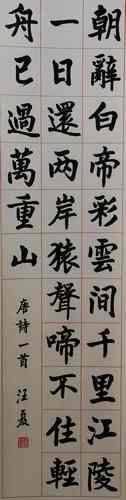 朝辭白帝彩雲間千里江陵
一日還两岸猿聲啼不住輕
舟已過萬重山
唐詩一首 汪夏